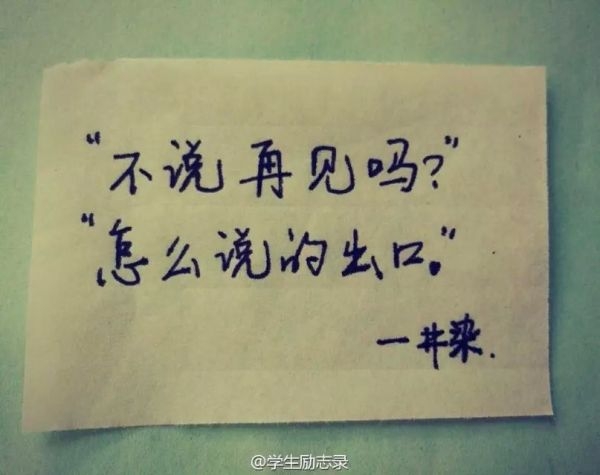 "不说再见吗?"
"怎么说的出口。"
一井染.
@学生励志录